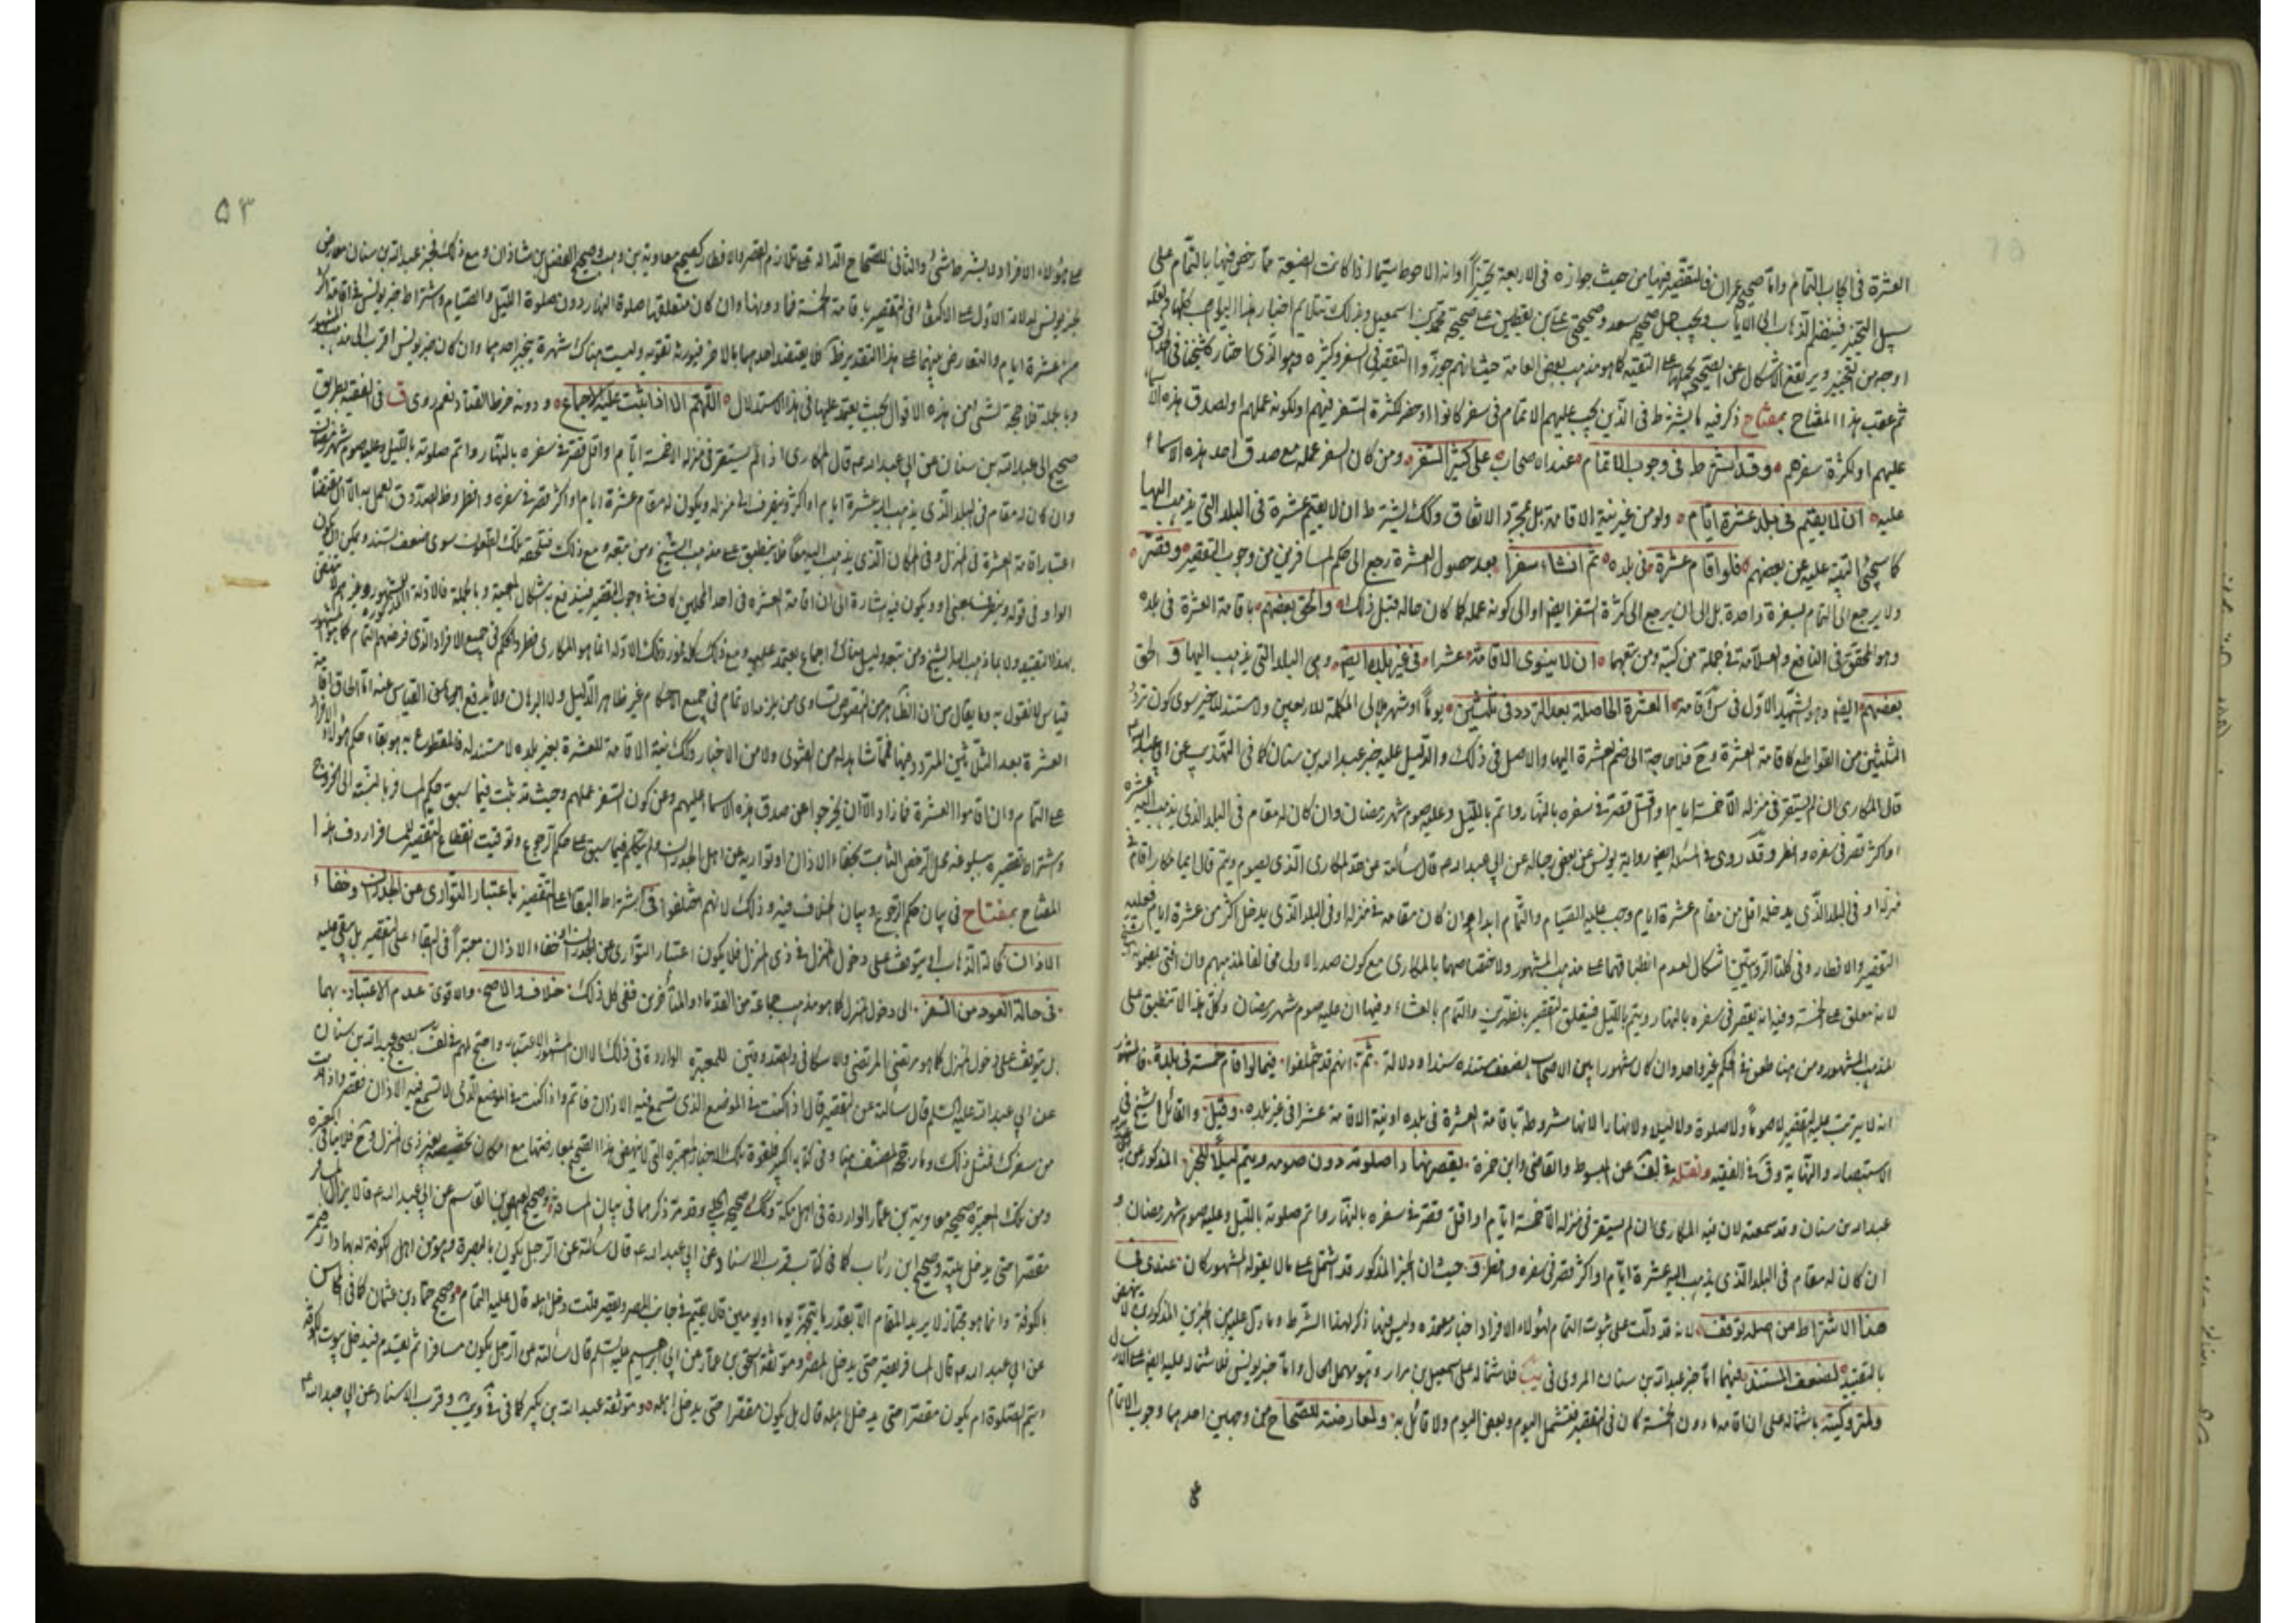 العشرة في ايجاب التمام واما صحيح عمران فالتقصير فيها من حيث جوازه في الاربعة تخييراً وانه الاحوط سيما اذا كانت الضيعة مما رخص فيها بالتمام على
سبيل التخيير فينضم الذهاب الى الاياب ويجب حمل صحيح سعد وصحيحتي علي بن يقطين على صحيحة محمد بن اسمعيل وبذلك تتلايم اخبار هذا الباب
اوجه من التخيير ويرتفع الاشكال عن الصحيح بحملها على التقية كما هو مذهب بعض العامة حيث انهم جوزوا التقصير في السفر وكثيره وهو الذي اختاره شيخنا في
ثم عقب هذا المفتاح بمفتاح ذكر فيه ما يشترط في الذين يجب عليهم الاتمام في سفر كانوا او حضر لكثرة السفر فيهم او لكونه عملهم او لصدق هذه الاسماء
عليهم او لكثرة سفرهم وقد اشترط في وجوب الاتمام عند الاصحاب على كثير السفر ومن كان السفر عمله مع صدق احد هذه الاسماء
عليه ان لا يقيم في بلده عشرة ايام ولو من غير نية الاقامة بل بمجرد الاتفاق وكذلك يشترط ان لا يقيم عشرة في البلد التي يذهب اليها
كما سيجئ التنبيه عليه عن بعضهم فلو اقام عشرة في بلده ثم انشاء سفرا بعد حصول العشرة رجع الى حكم المسافرين من وجوب التقصير وقصر
ولا يرجع الى التمام بسفرة واحدة بل الى ان يرجع الى كثرة السفر ايضا او الى كونه عمله كما كان حاله قبل ذلك والحق بعضهم باقامة العشرة في بلده
وهو المحقق في النافع والعلامة في جملة من كتبه ومن تبعهما ان لا ينوي الاقامة عشرا في غير بلده ايضا وهي البلد التي يذهب اليها والحق
بعضهم ايضا وهو الشهيد الاول في اقامة العشرة الحاصلة بعد التردد في ثلثين يوماً او شهر هلالي المكملة للاربعين ولا مستند للاخير سوى كون تردد
الثلثين من القواطع كاقامة العشرة وح فلا حاجة الى ضم العشرة اليها والاصل في ذلك والدليل عليه خبر عبد الله بن سنان كما في التهذيب عن ابي عبد الله
قال المكاري ان لم يستقر في منزله الا خمسة ايام او اقل قصر في سفره بالنهار واتم بالليل وعليه صوم شهر رمضان وان كان له مقام في البلد الذي يذهب اليه عشرة
او اكثر قصر في سفره وافطر وقد روى في المسئلة ايضا رواية يونس عن بعض رجاله عن ابي عبد الله ع قال سألته عن حد المكاري الذي يصوم ويتم قال ايما مكار اقام في
منزله او في البلد الذي يدخله اقل من مقام عشرة ايام وجب عليه الصيام والتمام ابدا وان كان مقامه في منزله او في البلد الذي يدخل اكثر من عشرة ايام فعليه
التقصير والافطار وفي كلتا الروايتين اشكال لعدم انطباقهما على مذهب المشهور ولاختصاصهما بالمكاري مع كون صدر الاولى مخالفا لمذهبهم وان افتى بعضهم به
لانه معلق على الخمسة وفيه انه يقصر في سفره بالنهار ويتم بالليل فيتعلق التقصير بالظهرين والتمام بالعشاء وفيها ان عليه صوم شهر رمضان وكل هذا لا تنطبق على
المذهب المشهور ومن هنا طعن في الحكم غير واحد وان كان مشهورا بين الاصحاب لضعف مستنده سندا ودلالة ثم انهم قد اختلفوا فيما لو اقام خمسة في بلدة فالمشهور
انه لا يترتب عليه التقصير لا صوماً ولا صلوة ولا ليلا ولا نهارا لانها مشروطة باقامة العشرة في بلده او نية الاقامة عشرا في غير بلده وقيل والقائل الشيخ في
الاستبصار والنهاية وق في الفقيه ونقله في لف عن المبسوط والقاضي وابن حمزة يقصر نهارا صلوته دون صومه ويتم ليلاً للخبر المذكور عن
عبد الله بن سنان وقد سمعته لان فيه المكاري ان لم يستقر في منزله الا خمسة ايام او اقل قصر في سفره بالنهار واتم صلوته بالليل وعليه صوم شهر رمضان و
ان كان له مقام في البلد الذي يذهب اليه عشرة ايام او اكثر قصر في سفره وافطر وحيث ان الخبر المذكور قد اشتمل على ما لا يقوله المشهور كان عندي في
هذا الاشتراط من اصله توقف لانه قد دلت على ثبوت التمام لهؤلاء الافراد اخبار معتمدة وليس فيها ذكر لهذا الشرط وما دل عليه من الخبرين المذكورين لا ينهض
بالتقييد لضعف المستند فيهما اما خبر عبد الله بن سنان المروي في يب فلاشتماله على اسمعيل بن مرار وهو مهمل الحال واما خبر يونس فلاشتماله عليه ايضا مع الارسال
ولمتروكيته باشتماله على ان اقامة ما دون الخمسة كان في التقصير فتشمل اليوم وبعض اليوم ولا قائل به ولمعارضته للصحاح من وجهين احدهما وجوب الاتمام
٥٣
على هؤلاء الافراد ولا بشرط شئ والثاني للصحاح الدالة على تلازم القصر والافطار كصحيح معاوية بن وهب وصحيح الفضل بن شاذان ومع ذلك فخبر عبد الله بن سنان معارض
بخبر يونس لدلالة الاول على الاكتفاء في التقصير باقامة الخمسة فما دونها وان كان متعلقها صلوة النهار دون صلوة الليل والصيام واشتراط خبر يونس في اقامة اكثر
من عشرة ايام والتعارض بينهما على هذا التقدير فلا يعتضد احدهما بالاخر فيورثه تقوية وليست هناك شهرة تجبر احدهما وان كان خبر يونس اقرب الى مذهب المشهور
وبالجملة فلا حجة لشئ من هذه الاقوال بحيث يعتمد عليها في هذا الاستدلال اللهم الا اذا ثبت عليه الاجماع ودونه خرط القتاد نعم روى ق في الفقيه بطريق
صحيح الى عبد الله بن سنان عن ابي عبد الله ع قال المكاري اذا لم يستقر في منزله الا خمسة ايام او اقل قصر في سفره بالنهار واتم صلوته بالليل وعليه صوم شهر رمضان
وان كان له مقام في البلد الذي يذهب اليه عشرة ايام او اكثر وينصرف الى منزله ويكون له مقام عشرة ايام او اكثر قصر في سفره وافطر وظاهر الصدوق العمل به الا ان مقتضاه
اعتبار اقامة العشرة في المنزل وفي المكان الذي يذهب اليه معاً فلا ينطبق على مذهب الشيخ ومن تبعه ومع ذلك فتلحقه تلك الطعون سوى ضعف السند ويمكن ان يكون
الواو في قوله وينصرف بمعنى او ويكون فيه اشارة الى ان اقامة العشرة في احد المحلين كاف في وجوب التقصير فيندفع به اشكال الجمعية وبالجملة فالادلة المذكورة
بهذا التقييد ولا بما ذهب اليه الشيخ ومن تبعه وليس هناك اجماع يعتمد عليه ومع ذلك كله فمورد تلك الادلة انما هو المكاري فطرد الحكم في جميع الافراد الذي فرضهم التمام كما هو المشهور
قياس لا نقول به وما يقال من ان الظاهر من النصوص تساوي من يلزمه الاتمام في جميع الاحكام غير ظاهر الدليل ولا البرهان ولا يندفع به محاسن القياس عنه اما الحاق اقامة
العشرة بعد الثلاثين المتردد فيها فمما لا شاهد له من الفتوى ولا من الاخبار وكذلك نية الاقامة للعشرة بغير بلده لا مستند له فالمقطوع به هو بقاء حكم هؤلاء الافراد
على التمام وان اقاموا العشرة فما زاد الا ان يخرجوا عن صدق هذه الاسماء عليهم وعن كون السفر عملهم وحيث قد ثبت فيما سبق حكم المسافر بالنسبة الى الخروج
واشتراط تقصيره ببلوغه محل الترخص الثابت بخفاء الاذان او تواريه عن اهل الجدران ولم يتكلم فيما سبق على حكم الرجوع وتوقيت انقطاع التقصير للمسافر اردف هذا
المفتاح بمفتاح في بيان حكم الرجوع وبيان الخلاف فيه وذلك لانهم اختلفوا في اشتراط البقاء على التقصير باعتبار التواري عن الجدران وخفاء
الاذان كحالة الذهاب او يتوقف على دخول المنزل في ذي المنزل فلا يكون اعتبار التواري عن الجدران وخفاء الاذان معتبراً في البقاء على التقصير بل يبقى عليه
في حالة العود من السفر الى دخول المنزل كما هو مذهب جماعة من القدماء والمتأخرين ففي كل ذلك خلاف والاصح والاقوى عدم الاعتبار بهما
بل يتوقف على دخول المنزل كما هو مرتضى المرتضى والاسكافي والصدوقين للمعتبرة الواردة في ذلك الا ان المشهور الاعتبار واحتج لهم في لف بصحيح عبد الله بن سنان
عن ابي عبد الله عليه السلم قال سألته عن التقصير قال اذا كنت في الموضع الذي تسمع فيه الاذان فاتم واذا كنت في الموضع الذي لا تسمع فيه الاذان فقصر واذا قدمت
من سفرك فمثل ذلك وما رجحه المصنف هنا وفي كتابه الكبير لقوة تلك الاخبار المعتبرة التي لا ينهض هذا الصحيح لمعارضتها مع امكان تخصيصه بغير ذي المنزل وح فلا ينافي
ومن تلك المعتبرة صحيح معاوية بن عمار الواردة في اهل مكة وكذلك صحيح الحلبي وقد مر ذكرهما في بيان المسافة وصحيح العيص بن القاسم عن ابي عبد الله ع قال لا يزال المسافر
مقصرا حتى يدخل بيته وصحيح ابن رئاب كما في كتاب قرب الاسناد عن ابي عبد الله ع قال سألته عن الرجل يكون بالبصرة وهو من اهل الكوفة له بها دار ومنزل
بالكوفة وانما هو مجتاز لا يريد المقام الا بقدر ما يتجهز يوما او يومين قال يقيم في جانب المصر ويقصر قلت دخل اهله قال عليه التمام وصحيح حماد بن عثمان كما في المحاسن
عن ابي عبد الله ع قال المسافر يقصر حتى يدخل المصر وموثقة اسحق بن عمار عن ابي ابراهيم عليه السلم قال سألته عن الرجل يكون مسافرا ثم يقدم فيدخل بيوت الكوفة
ايتم الصلوة ام يكون مقصرا حتى يدخل اهله قال بل يكون مقصرا حتى يدخل اهله وموثقة عبد الله بن بكير كما في وقرب الاسناد عن ابي عبد الله ع